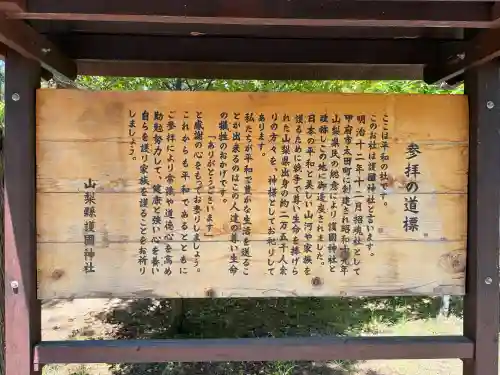 参拝の道標
ここは平和の社です。
このお社は護國神社と言います。
明治十二年十一月招魂社として
甲府市太田町に創建され昭和十九年
山梨県民の総意により護國神社と
改称しこの地に御遷座されました。
日本の平和と美しい山河や家族を
護るために戦争で尊い生命を捧げら
れた山梨県出身の約二万五千人余
りの方々を「神様」としてお祀りして
あります。
私たちが平和で豊かな生活を送るこ
とが出来るのはこの人達の尊い生命
の犠牲のおかげです。
「ありがとうございます」
と感謝の心をもってお参りしましょう。
これからも平和であるとともに
ご参拝により常識や道徳心を高め
勤勉努力して、健康と強い心を養い
自らを護り家族を護ることをお祈り
しましょう。
山梨縣護國神社